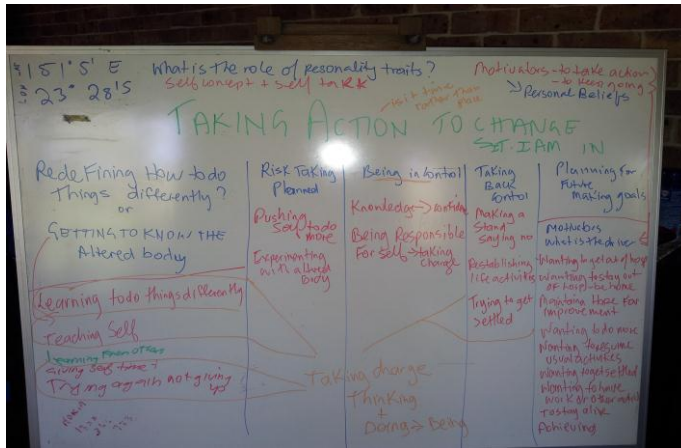 151° 5' E
23° 28'S
What is the role of personality traits?
Self concept + Self talk
Motivators - to take action
- to keep going
Personal Beliefs
TAKING ACTION TO CHANGE
SIT. I AM IN
Redefining How to do
Things differently?
or
GETTING TO KNOW THE
Altered body
Learning to do things differently
Teaching Self
Learning From Others
Giving Self time?
Trying again not giving
up
Risk Taking
Planned
Pushing
Self to do
more
Experimenting
with altered
body
Being in Control
Knowledge →
Being Responsible
For self → taking
charge
Taking charge
Thinking
+
Doing → Being
Taking
Back
Control
Making a
Stand
saying no
Restablishing
life activities
Trying to get
settled
Planning for
Future
making goals
Motivators
what is the driver
Wanting to get out of hosp
Wanting to stay out
of hosp - be home
Maintaing Hope For
improvement
Wanting to do more
Wanting to resume
usual activities
Wanting to get settled
Wanting to have
work or other
To stay alive
Achieving